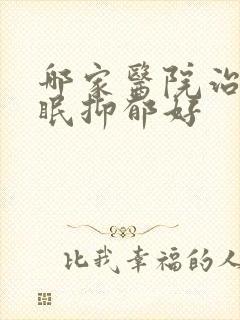 哪家醫院治
眠抑郁好
比我幸福的人